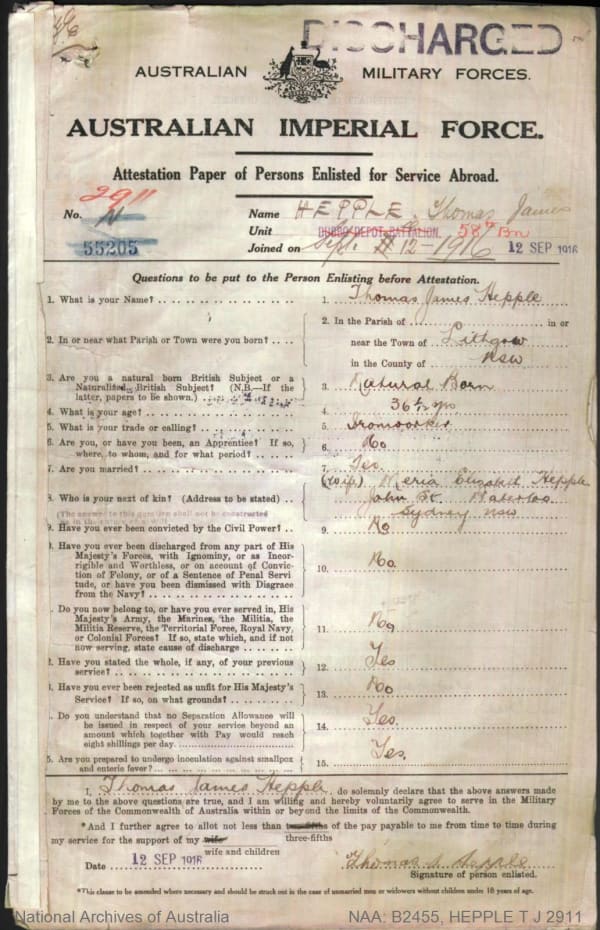 DISCHARGED
AUSTRALIAN MILITARY FORCES.
AUSTRALIAN IMPERIAL FORCE.
Attestation Paper of Persons Enlisted for Service Abroad.
2911
No. N Name HEPPLE, Thomas James
55205 Unit DUBBO DEPOT BATTALION. 58th Bn
Joined on Sept. 12 - 1916 12 SEP 1916
Questions to be put to the Person Enlisting before Attestation.
1. What is your Name? 1. Thomas James Hepple
2. In or near what Parish or Town were you born? 2. In the Parish of in or
near the Town of Lithgow
in the County of NSW
3. Are you a natural born British Subject or a
Naturalised British Subject? (N.B.—If the
latter, papers to be shown.) 3. Natural Born
4. What is your age? 4. 36 1/2 yrs
5. What is your trade or calling? 5. Ironworker
6. Are you, or have you been, an Apprentice? If so,
where, to whom, and for what period? 6. No
7. Are you married? 7. Yes
8. Who is your next of kin? (Address to be stated) 8. (Wife) Meria Elizabeth Hepple
John St Waterloo
Sydney NSW
(The answer to this question shall not be construed
as in the nature of a will.)
9. Have you ever been convicted by the Civil Power? 9. No
Have you ever been discharged from any part of His
Majesty's Forces, with Ignominy, or as Incor-
rigible and Worthless, or on account of Convic-
tion of Felony, or of a Sentence of Penal Servi
tude, or have you been Dismissed with Disgrace
from the Navy? 10. No.
Do you now belong to, or have you ever served in, His
Majesty's Army, the Marines, the Militia, the
Militia Reserve, the Territorial Force, Royal Navy,
or Colonial Forces? If so, state which, and if not
now serving, state cause of discharge 11. No
2. Have you stated the whole, if any, of your previous
service? 12. Yes
3. Have you ever been rejected as unfit for His Majesty's
Service? If so, on what grounds? 13. No
. Do you understand that no Separation Allowance will
be issued in respect of your service beyond an
amount which together with Pay would reach
eight shillings per day. 14. Yes.
5. Are you prepared to undergo inoculation against smallpox
and enteric fever? 15. Yes.
I, Thomas James Hepple, do solemnly declare that the above answers made
by me to the above questions are true, and I am willing and hereby voluntarily agree to serve in the Military
Forces of the Commonwealth of Australia within or beyond the limits of the Commonwealth.
*And I further agree to allot not less than two-fifths of the pay payable to me from time to time during
three-fifths
my service for the support of my wife
wife and children
Date 12 SEP 1916 Thomas J. Hepple
Signature of person enlisted.
*This clause to be amended where necessary and should be struck out in the case of unmarried men or widowers without children under 18 years of age.
National Archives of Australia NAA: B2455, HEPPLE T J 2911